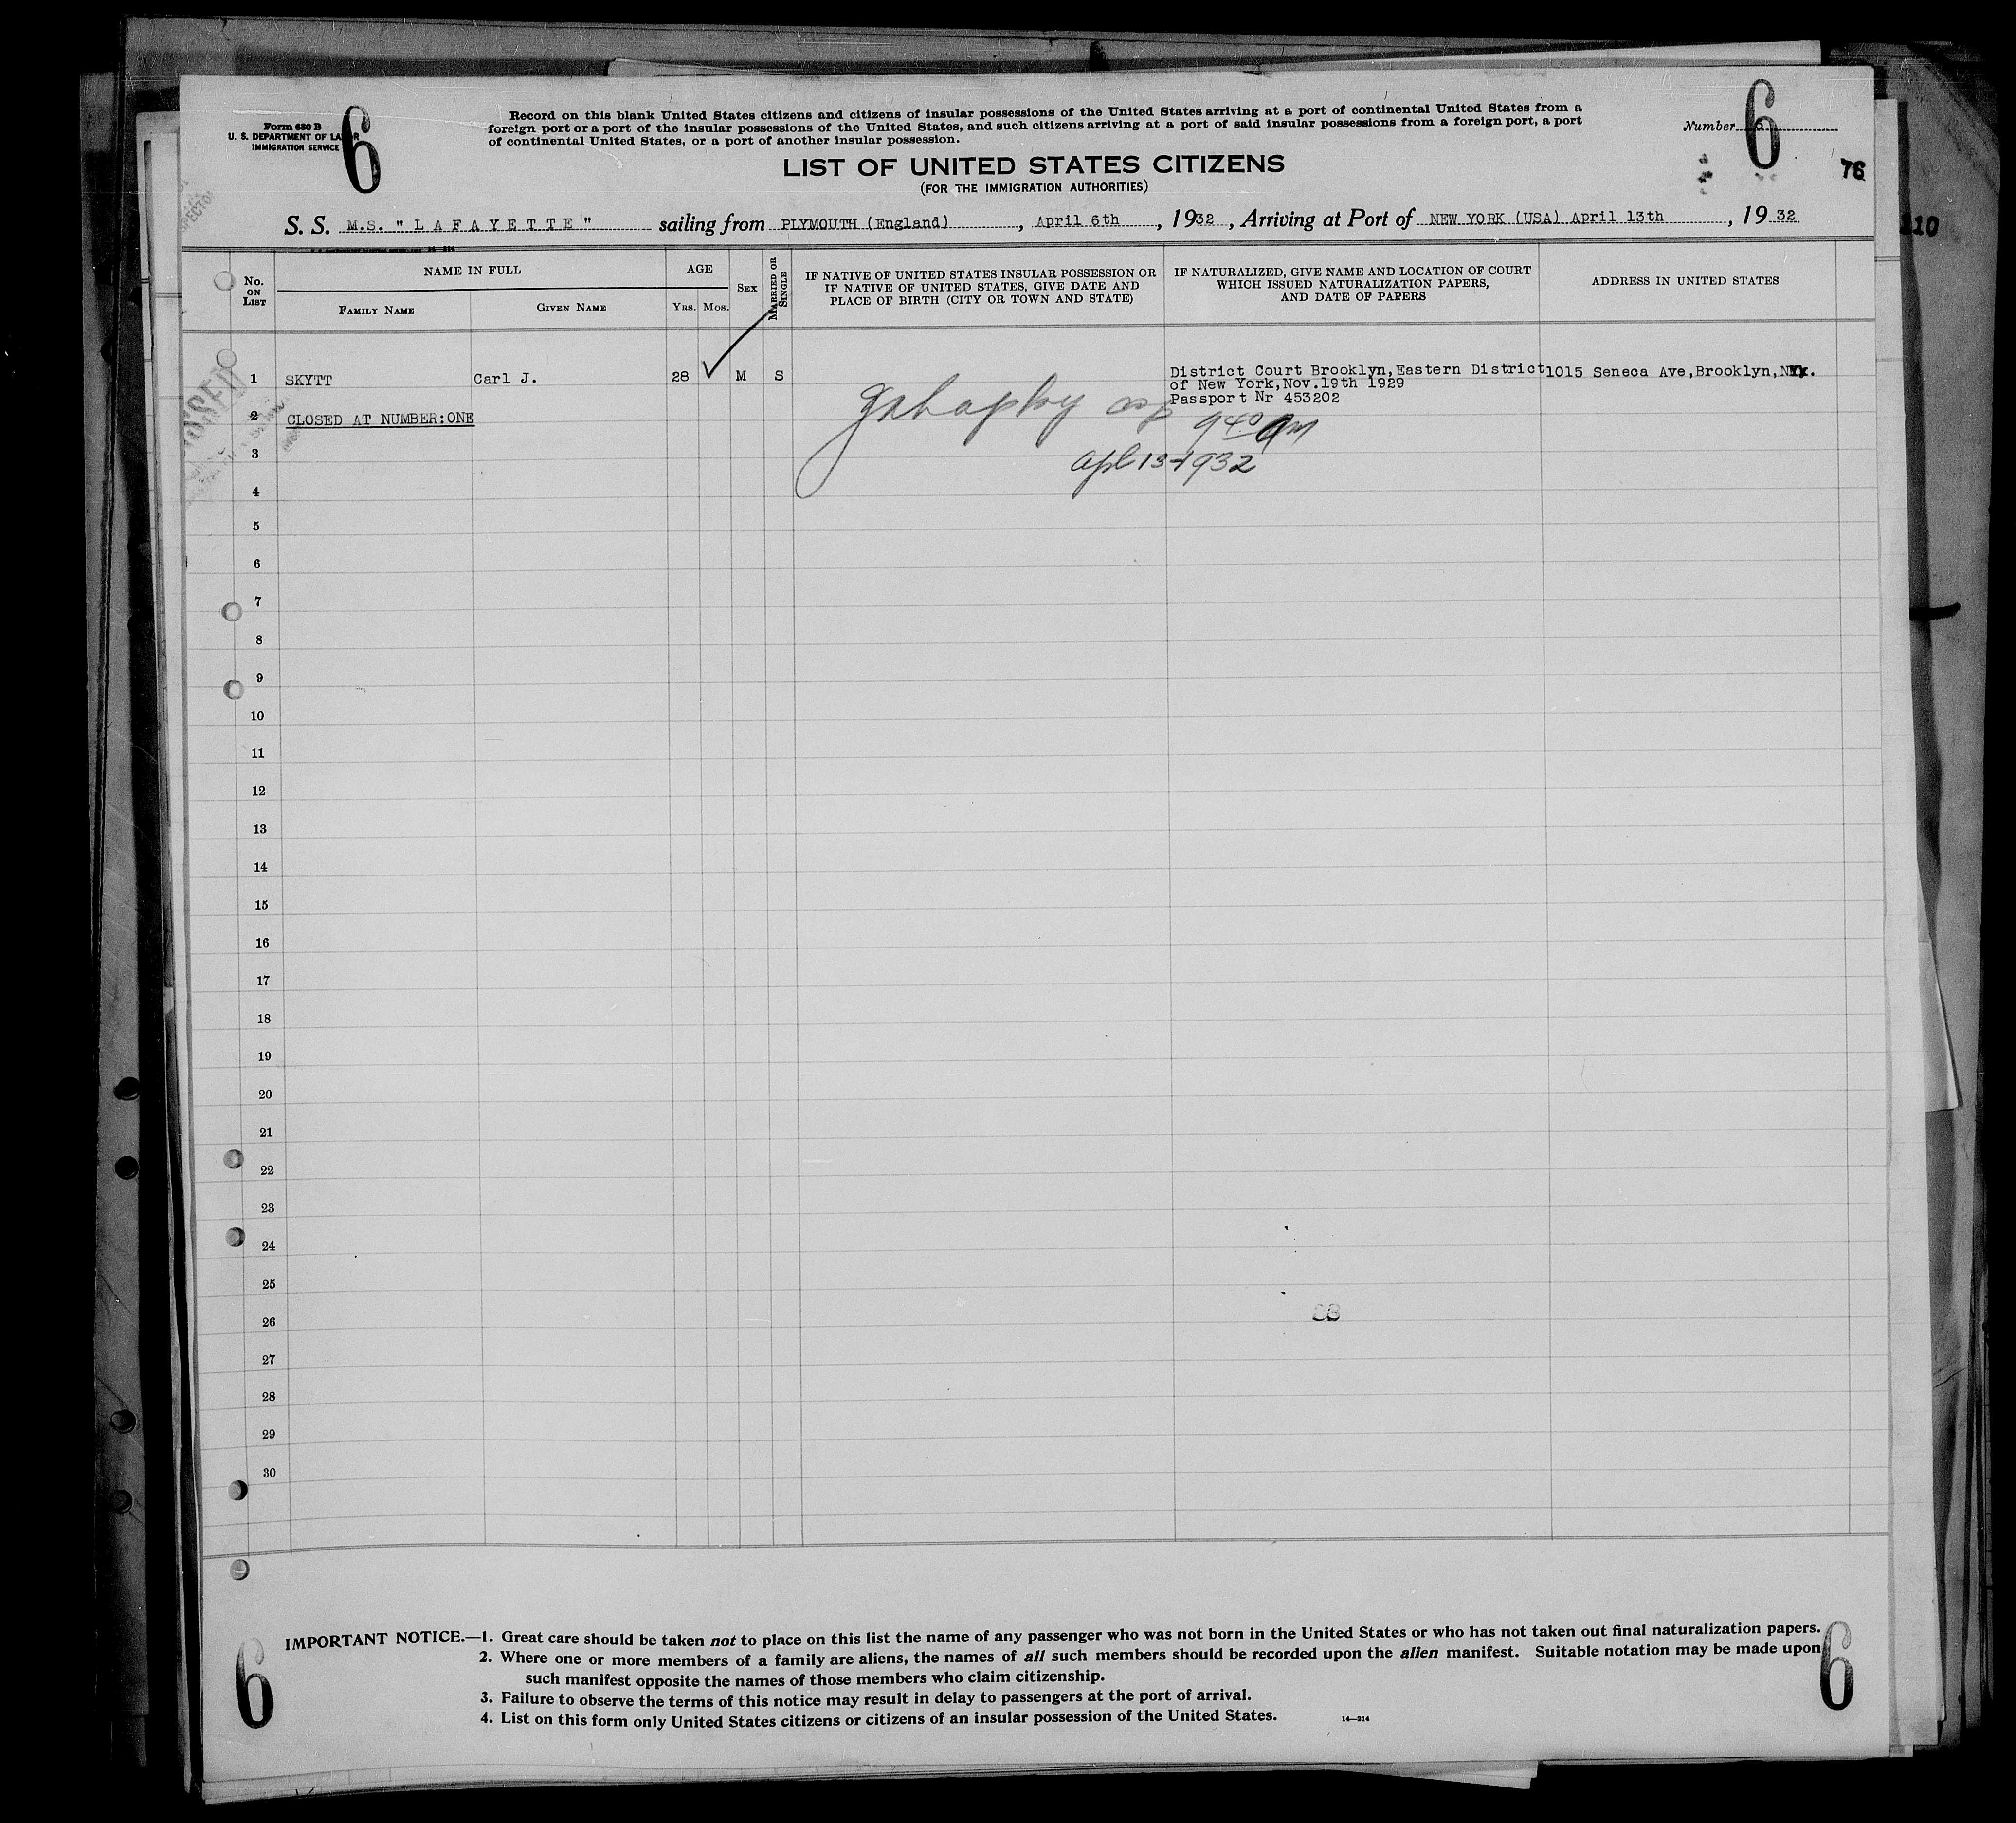 Form 630 B
U. S. DEPARTMENT OF LABOR
IMMIGRATION SERVICE
6
Record on this blank United States citizens and citizens of insular possessions of the United States arriving at a port of continental United States from a
foreign port or a port of the insular possessions of the United States, and such citizens arriving at a port of said insular possessions from a foreign port, a port
of continental United States, or a port of another insular possession.
Number 6
76
110
LIST OF UNITED STATES CITIZENS
(FOR THE IMMIGRATION AUTHORITIES)
S. S. M.S. " L A F A Y E T T E " sailing from PLYMOUTH (England) , April 6th , 1932 , Arriving at Port of NEW YORK (USA) April 13th , 19 32
No. ON LIST
NAME IN FULL
FAMILY NAME
GIVEN NAME
AGE
YRS. MOS.
SEX
MARRIED OR SINGLE
IF NATIVE OF UNITED STATES INSULAR POSSESSION OR
IF NATIVE OF UNITED STATES, GIVE DATE AND
PLACE OF BIRTH (CITY OR TOWN AND STATE)
IF NATURALIZED, GIVE NAME AND LOCATION OF COURT
WHICH ISSUED NATURALIZATION PAPERS,
AND DATE OF PAPERS
ADDRESS IN UNITED STATES
1 SKYTT Carl J. 28 M S District Court Brooklyn,Eastern District 1015 Seneca Ave,Brooklyn,NY.
of New York,Nov.19th 1929
Passport Nr 453202
2 CLOSED AT NUMBER:ONE
9 40 am
3 Apl 13-1932
4
5
6
7
8
9
10
11
12
13
14
15
16
17
18
19
20
21
22
23
24
25
26
27
28
29
30
IMPORTANT NOTICE.—1. Great care should be taken not to place on this list the name of any passenger who was not born in the United States or who has not taken out final naturalization papers.
2. Where one or more members of a family are aliens, the names of all such members should be recorded upon the alien manifest. Suitable notation may be made upon
such manifest opposite the names of those members who claim citizenship.
3. Failure to observe the terms of this notice may result in delay to passengers at the port of arrival.
4. List on this form only United States citizens or citizens of an insular possession of the United States.
14—214
6
6